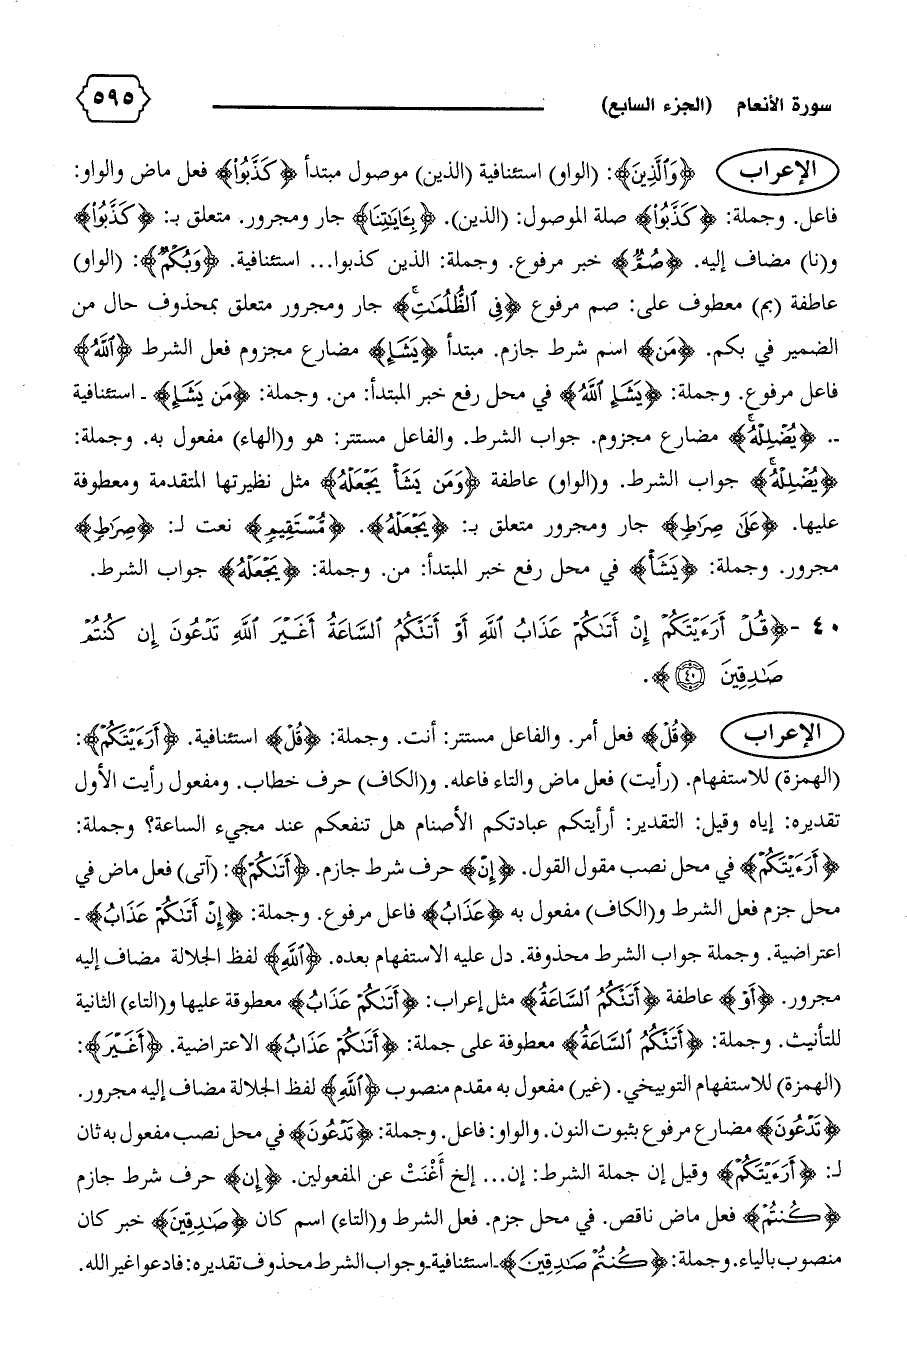 سورة الأنعام (الجزء السابع) ٥٩٥
الإعراب ﴿وَٱلَّذِينَ﴾: (الواو) استئنافية (الذين) موصول مبتدأ ﴿كَذَّبُوا۟﴾ فعل ماض والواو:
فاعل. وجملة: ﴿كَذَّبُوا۟﴾ صلة الموصول: (الذين). ﴿بِـَٔايَـٰتِنَا﴾ جار ومجرور. متعلق بـ: ﴿كَذَّبُوا۟﴾
و(نا) مضاف إليه. ﴿صُمٌّ﴾ خبر مرفوع. وجملة: الذين كذبوا... استئنافية. ﴿وَبُكْمٌ﴾: (الواو)
عاطفة (بم) معطوف على: صم مرفوع ﴿فِى ٱلظُّلُمَـٰتِ﴾ جار ومجرور متعلق بمحذوف حال من
الضمير في بكم. ﴿مَن﴾ اسم شرط جازم. مبتدأ ﴿يَشَإِ﴾ مضارع مجزوم فعل الشرط ﴿ٱللَّهُ﴾
فاعل مرفوع. وجملة: ﴿يَشَإِ ٱللَّهُ﴾ في محل رفع خبر المبتدأ: من. وجملة: ﴿مَن يَشَإِ﴾ ـ استئنافية
-. ﴿يُضْلِلْهُ﴾ مضارع مجزوم. جواب الشرط. والفاعل مستتر: هو و(الهاء) مفعول به. وجملة:
﴿يُضْلِلْهُ﴾ جواب الشرط. و(الواو) عاطفة ﴿وَمَن يَشَأْ يَجْعَلْهُ﴾ مثل نظيرتها المتقدمة ومعطوفة
عليها. ﴿عَلَىٰ صِرَٰطٍ﴾ جار ومجرور متعلق بـ: ﴿يَجْعَلْهُ﴾. ﴿مُّسْتَقِيمٍ﴾ نعت لـ: ﴿صِرَٰطٍ﴾
مجرور. وجملة: ﴿يَشَأْ﴾ في محل رفع خبر المبتدأ: من. وجملة: ﴿يَجْعَلْهُ﴾ جواب الشرط.
٤٠ -﴿قُلْ أَرَءَيْتَكُمْ إِنْ أَتَىٰكُمْ عَذَابُ ٱللَّهِ أَوْ أَتَتْكُمُ ٱلسَّاعَةُ أَغَيْرَ ٱللَّهِ تَدْعُونَ إِن كُنتُمْ
صَـٰدِقِينَ ٤٠﴾.
الإعراب ﴿قُلْ﴾ فعل أمر. والفاعل مستتر: أنت. وجملة: ﴿قُلْ﴾ استئنافية. ﴿أَرَءَيْتَكُمْ﴾:
(الهمزة) للاستفهام. (رأيت) فعل ماض والتاء فاعله. و(الكاف) حرف خطاب. ومفعول رأيت الأول
تقديره: إياه وقيل: التقدير: أرأيتكم عبادتكم الأصنام هل تنفعكم عند مجيء الساعة؟ وجملة:
﴿أَرَءَيْتَكُمْ﴾ في محل نصب مقول القول. ﴿إِنْ﴾ حرف شرط جازم. ﴿أَتَىٰكُمْ﴾: (آتى) فعل ماض في
محل جزم فعل الشرط و(الكاف) مفعول به ﴿عَذَابُ﴾ فاعل مرفوع. وجملة: ﴿إِنْ أَتَىٰكُمْ عَذَابُ﴾ ـ
اعتراضية. وجملة جواب الشرط محذوفة. دل عليه الاستفهام بعده. ﴿ٱللَّهِ﴾ لفظ الجلالة مضاف إليه
مجرور. ﴿أَوْ﴾ عاطفة ﴿أَتَتْكُمُ ٱلسَّاعَةُ﴾ مثل إعراب: ﴿أَتَىٰكُمْ عَذَابُ﴾ معطوفة عليها و(التاء) الثانية
للتأنيث. وجملة: ﴿أَتَتْكُمُ ٱلسَّاعَةُ﴾ معطوفة على جملة: ﴿أَتَىٰكُمْ عَذَابُ﴾ الاعتراضية. ﴿أَغَيْرَ﴾:
(الهمزة) للاستفهام التوبيخي. (غير) مفعول به مقدم منصوب ﴿ٱللَّهِ﴾ لفظ الجلالة مضاف إليه مجرور.
﴿تَدْعُونَ﴾ مضارع مرفوع بثبوت النون. والواو: فاعل. وجملة: ﴿تَدْعُونَ﴾ في محل نصب مفعول به ثان
لـ: ﴿أَرَءَيْتَكُمْ﴾ وقيل إن جملة الشرط: إن... إلخ أَغْنَتْ عن المفعولين. ﴿إِن﴾ حرف شرط جازم
﴿كُنتُمْ﴾ فعل ماض ناقص. في محل جزم. فعل الشرط و(التاء) اسم كان ﴿صَـٰدِقِينَ﴾ خبر كان
منصوب بالياء. وجملة: ﴿كُنتُمْ صَـٰدِقِينَ﴾ ـ استئنافية ـ وجواب الشرط محذوف تقديره: فادعوا غير الله.